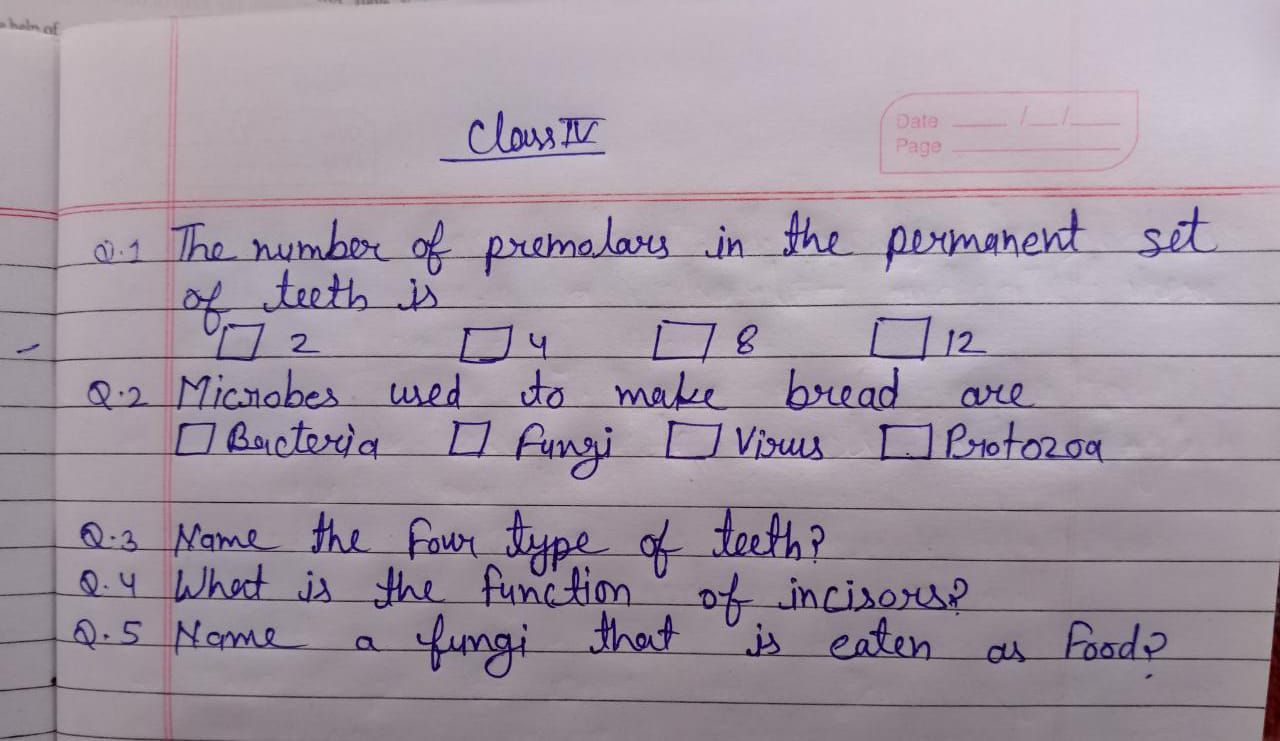 help of
Class IV
Date __/__/__
Page
Q.1 The number of premolars in the permanent set
of teeth is
☐ 2 ☐ 4 ☐ 8 ☐ 12
Q.2 Microbes used to make bread are
☐ Bacteria ☐ Fungi ☐ Virus ☐ Protozoa
Q.3 Name the Four type of teeth?
Q.4 What is the function of incisors?
Q.5 Name a fungi that is eaten as Food?